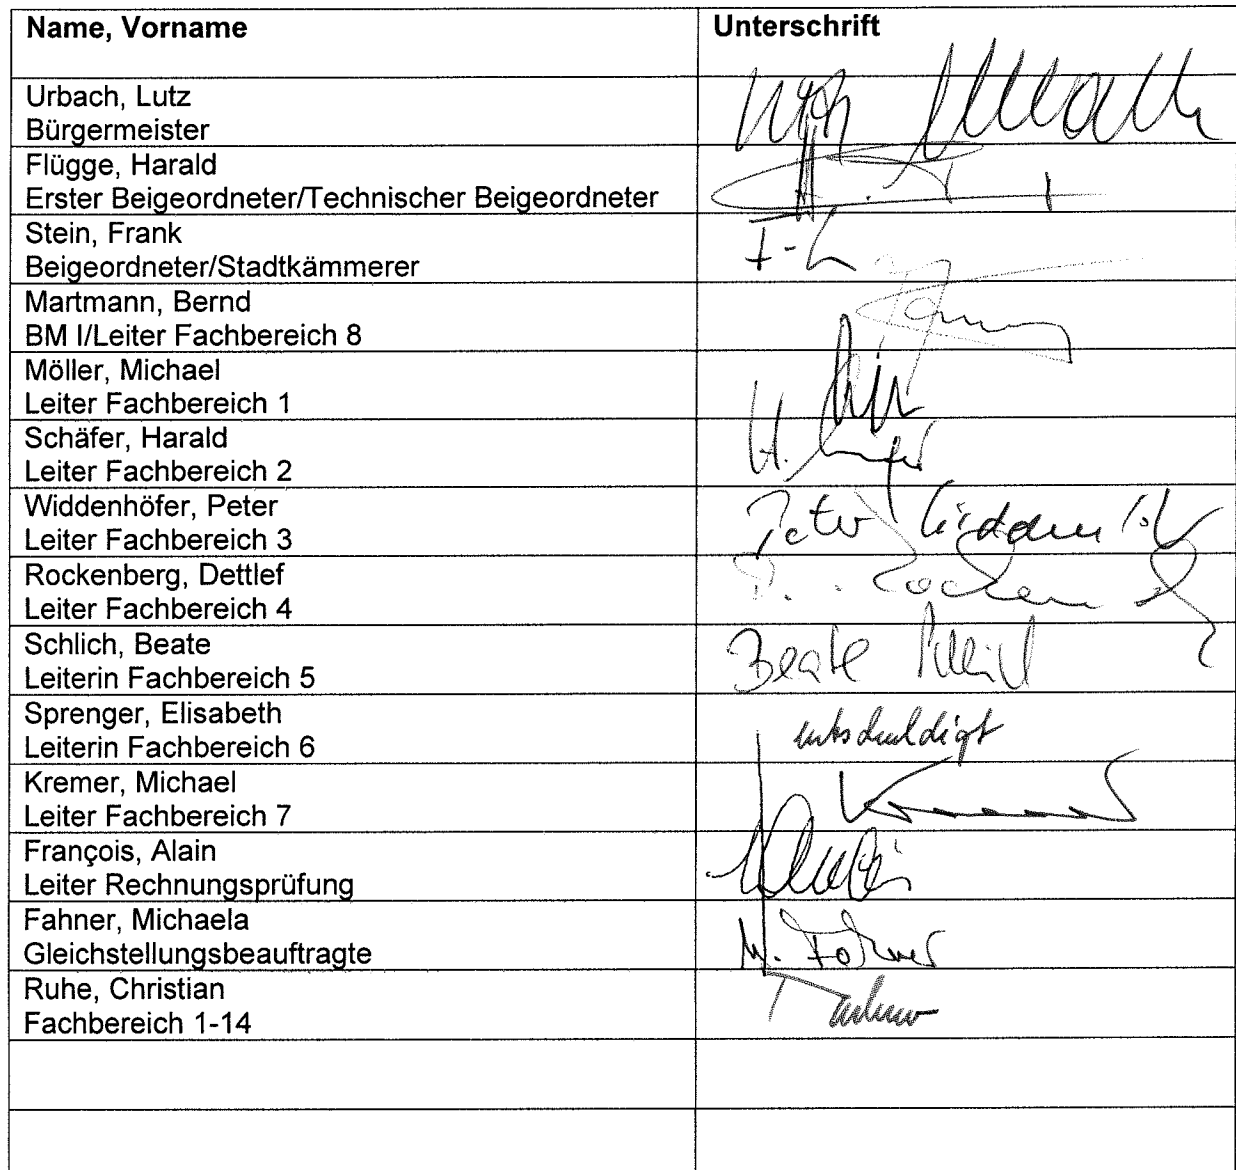 Name, Vorname Unterschrift
Urbach, Lutz
Bürgermeister
Flügge, Harald
Erster Beigeordneter/Technischer Beigeordneter
Stein, Frank
Beigeordneter/Stadtkämmerer
Martmann, Bernd
BM I/Leiter Fachbereich 8
Möller, Michael
Leiter Fachbereich 1
Schäfer, Harald
Leiter Fachbereich 2
H.
Widdenhöfer, Peter
Leiter Fachbereich 3
Peter
Rockenberg, Dettlef
Leiter Fachbereich 4
Schlich, Beate
Leiterin Fachbereich 5
Beate Schlich
Sprenger, Elisabeth
Leiterin Fachbereich 6
entschuldigt
Kremer, Michael
Leiter Fachbereich 7
François, Alain
Leiter Rechnungsprüfung
Fahner, Michaela
Gleichstellungsbeauftragte
M. Fahner
Ruhe, Christian
Fachbereich 1-14